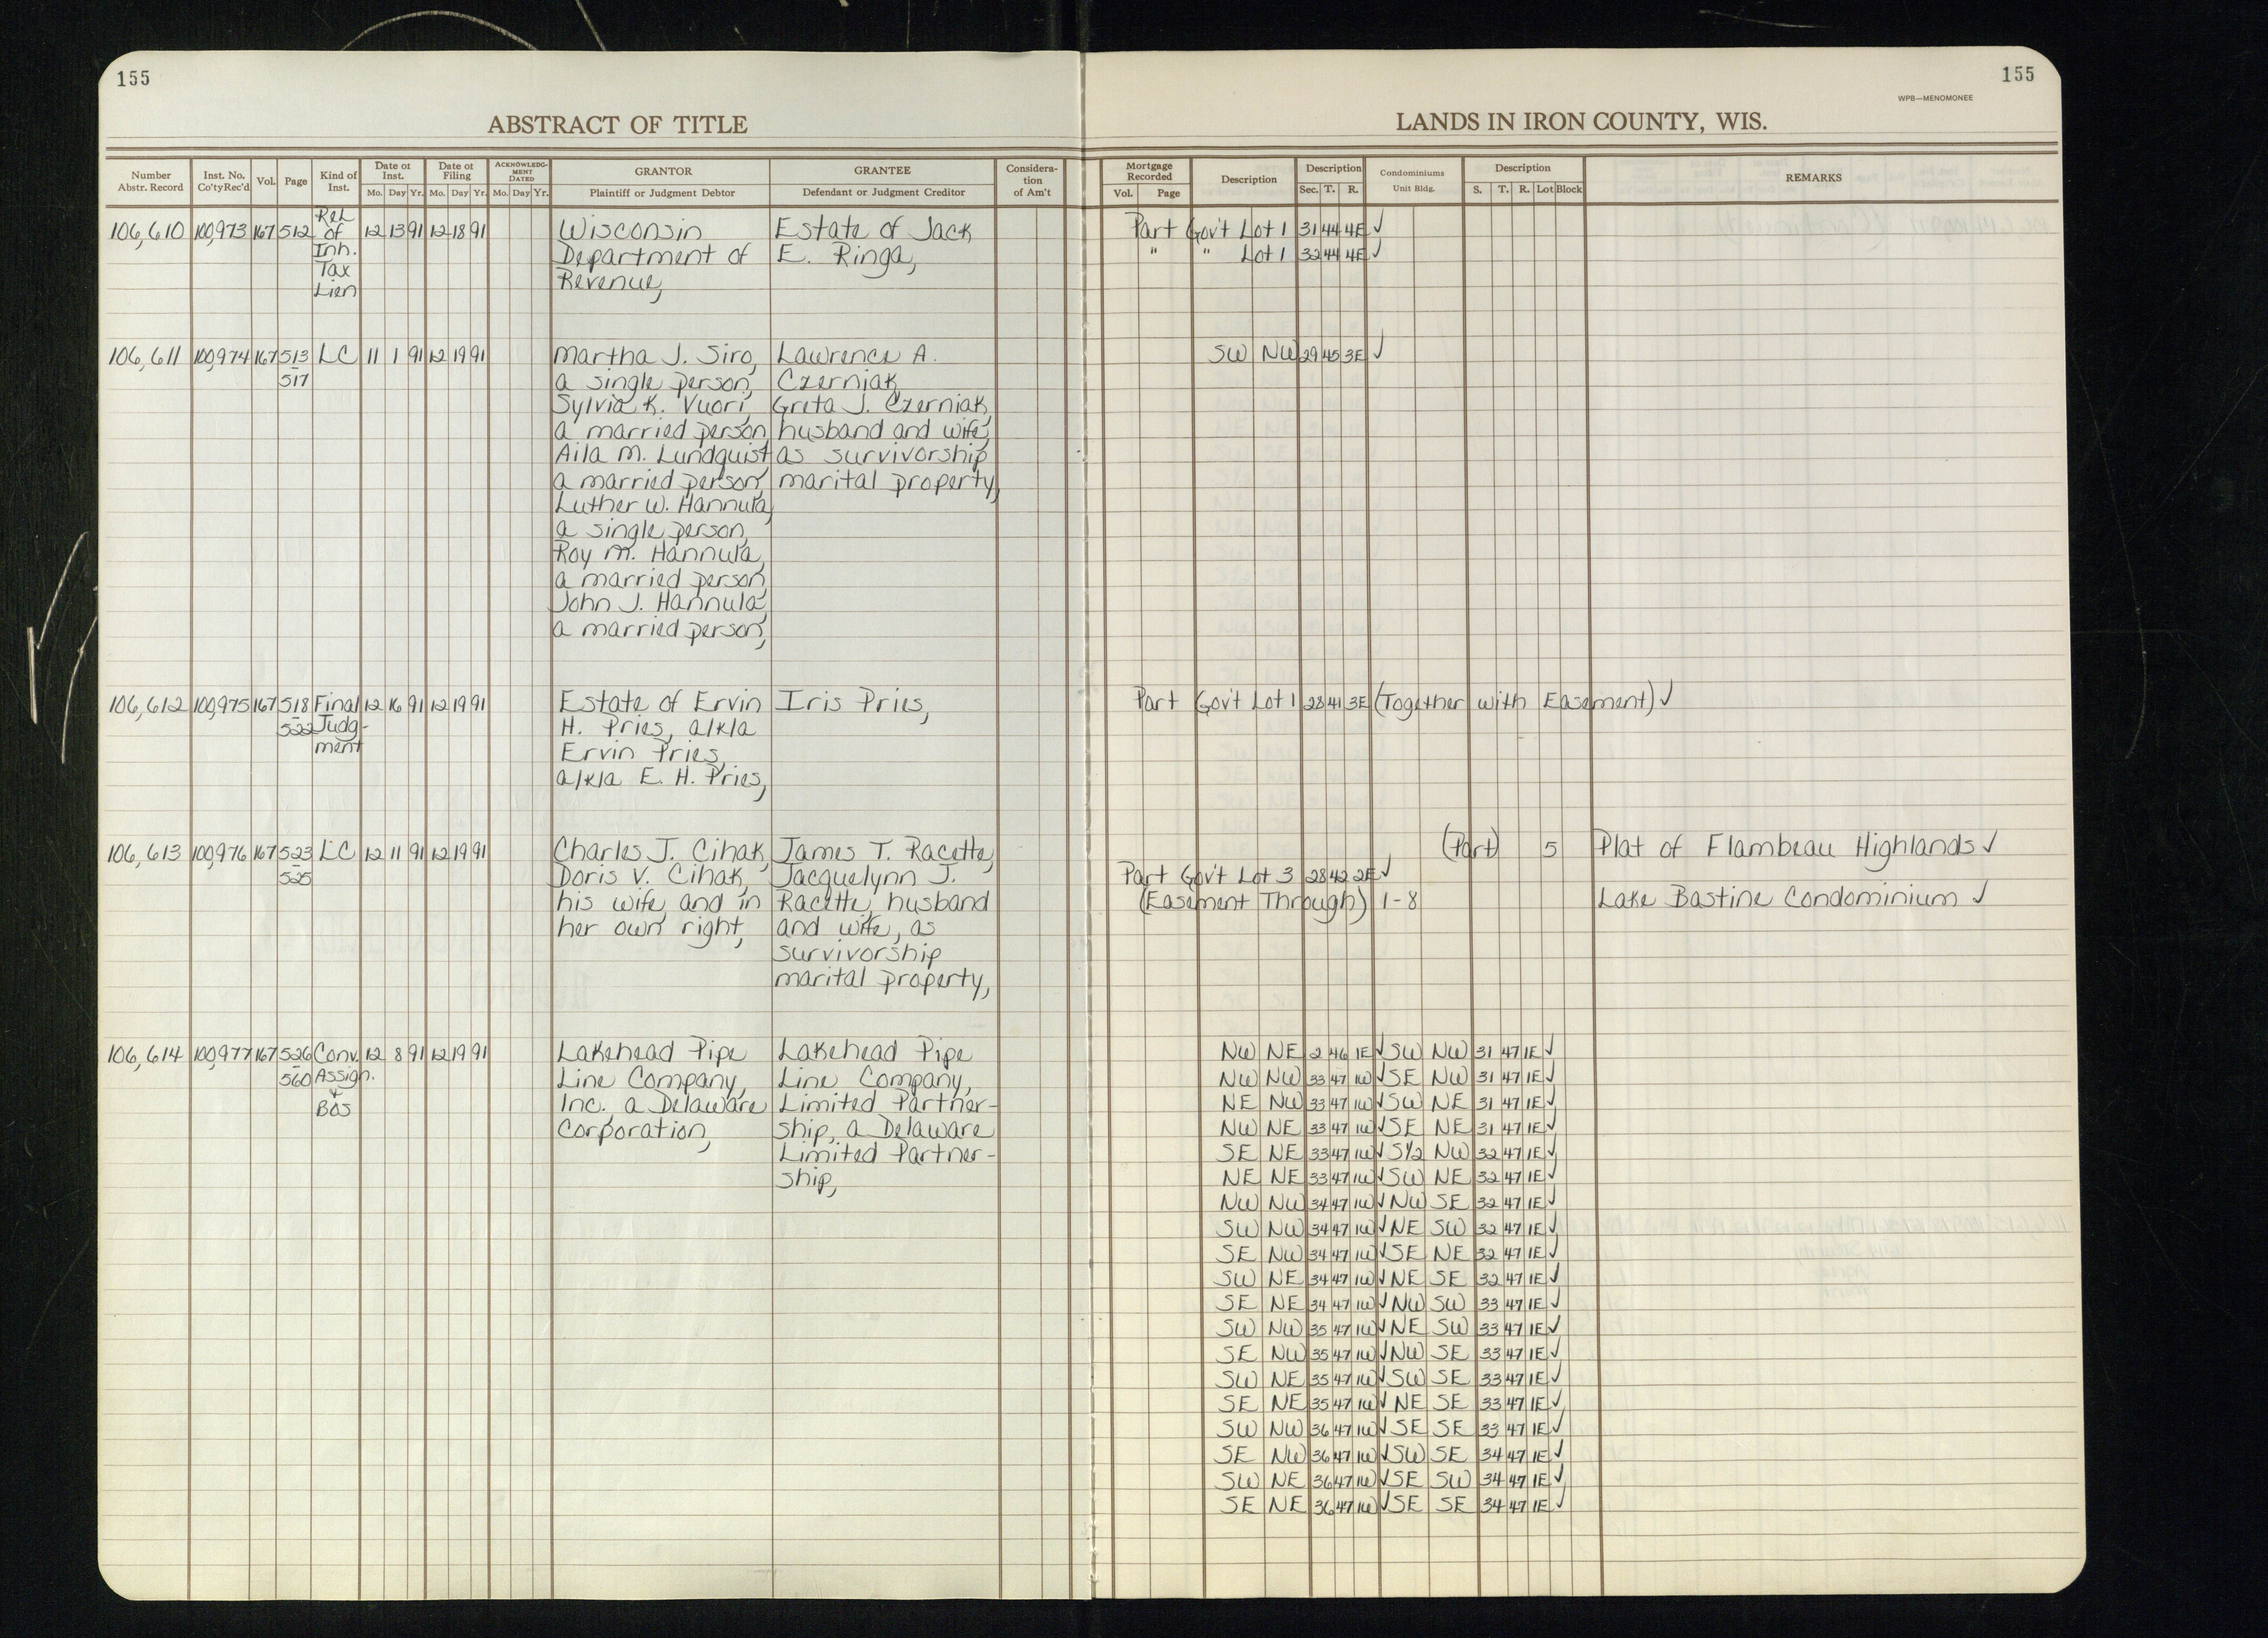 155
155
WPB—MENOMONEE
ABSTRACT OF TITLE
LANDS IN IRON COUNTY, WIS.
Number Abstr. Record | Inst. No. Co'ty Rec'd | Vol. | Page | Kind of Inst. | Date of Inst. Mo. Day Yr. | Date of Filing Mo. Day Yr. | ACKNOWLEDGMENT DATED Mo. Day Yr. | GRANTOR Plaintiff or Judgment Debtor | GRANTEE Defendant or Judgment Creditor | Consideration of Am't | Mortgage Recorded Vol. Page | Description | Description Sec. T. R. | Condominiums Unit Bldg. | Description S. T. R. Lot Block | REMARKS
106,610 100,973 167 512 Rel. 12 13 91 12 18 91 Wisconsin Estate of Jack Part Gov't Lot 1 31 44 4E ✓
of Department of E. Ringa, " " Lot 1 32 44 4E ✓
Inh. Revenue,
Tax
Lien
106,611 100,974 167 513 LC 11 1 91 12 19 91 Martha J. Siro, Lawrence A. SW NW 29 45 3E ✓
- 517 a single person, Czerniak,
Sylvia K. Vuori, Greta J. Czerniak,
a married person, husband and wife,
Aila M. Lundquist as survivorship
a married person, marital property,
Luther W. Hannula,
a single person,
Roy M. Hannula,
a married person,
John J. Hannula,
a married person,
106,612 100,975 167 518 Final 12 16 91 12 19 91 Estate of Ervin Iris Pries, Part Gov't Lot 1 28 41 3E (Together with Easement) ✓
- 522 Judg- H. Pries, a/k/a
ment Ervin Pries,
a/k/a E. H. Pries,
106,613 100,976 167 523 LC 12 11 91 12 19 91 Charles J. Cihak, James T. Racette, (Part) 5 Plat of Flambeau Highlands ✓
- 525 Doris V. Cihak, Jacquelynn J. Part Gov't Lot 3 28 42 2E ✓
his wife and in Racette, husband (Easement Through) 1-8 Lake Bastine Condominium ✓
her own right, and wife, as
survivorship
marital property,
106,614 100,977 167 526 Conv. 12 8 91 12 19 91 Lakehead Pipe Lakehead Pipe NW NE 2 46 1E ✓ SW NW 31 47 1E ✓
- 560 Assign. Line Company, Line Company, NW NW 33 47 1W ✓ SE NW 31 47 1E ✓
+ BOS Inc. a Delaware Limited Partner- NE NW 33 47 1W ✓ SW NE 31 47 1E ✓
Corporation, ship, a Delaware NW NE 33 47 1W ✓ SE NE 31 47 1E ✓
Limited Partner- SE NE 33 47 1W ✓ S1/2 NW 32 47 1E ✓
ship, NE NE 33 47 1W ✓ SW NE 32 47 1E ✓
NW NW 34 47 1W ✓ NW SE 32 47 1E ✓
SW NW 34 47 1W ✓ NE SW 32 47 1E ✓
SE NW 34 47 1W ✓ SE NE 32 47 1E ✓
SW NE 34 47 1W ✓ NE SE 32 47 1E ✓
SE NE 34 47 1W ✓ NW SW 33 47 1E ✓
SW NW 35 47 1W ✓ NE SW 33 47 1E ✓
SE NW 35 47 1W ✓ NW SE 33 47 1E ✓
SW NE 35 47 1W ✓ SW SE 33 47 1E ✓
SE NE 35 47 1W ✓ NE SE 33 47 1E ✓
SW NW 36 47 1W ✓ SE SE 33 47 1E ✓
SE NW 36 47 1W ✓ SW SE 34 47 1E ✓
SW NE 36 47 1W ✓ SE SW 34 47 1E ✓
SE NE 36 47 1W ✓ SE SE 34 47 1E ✓